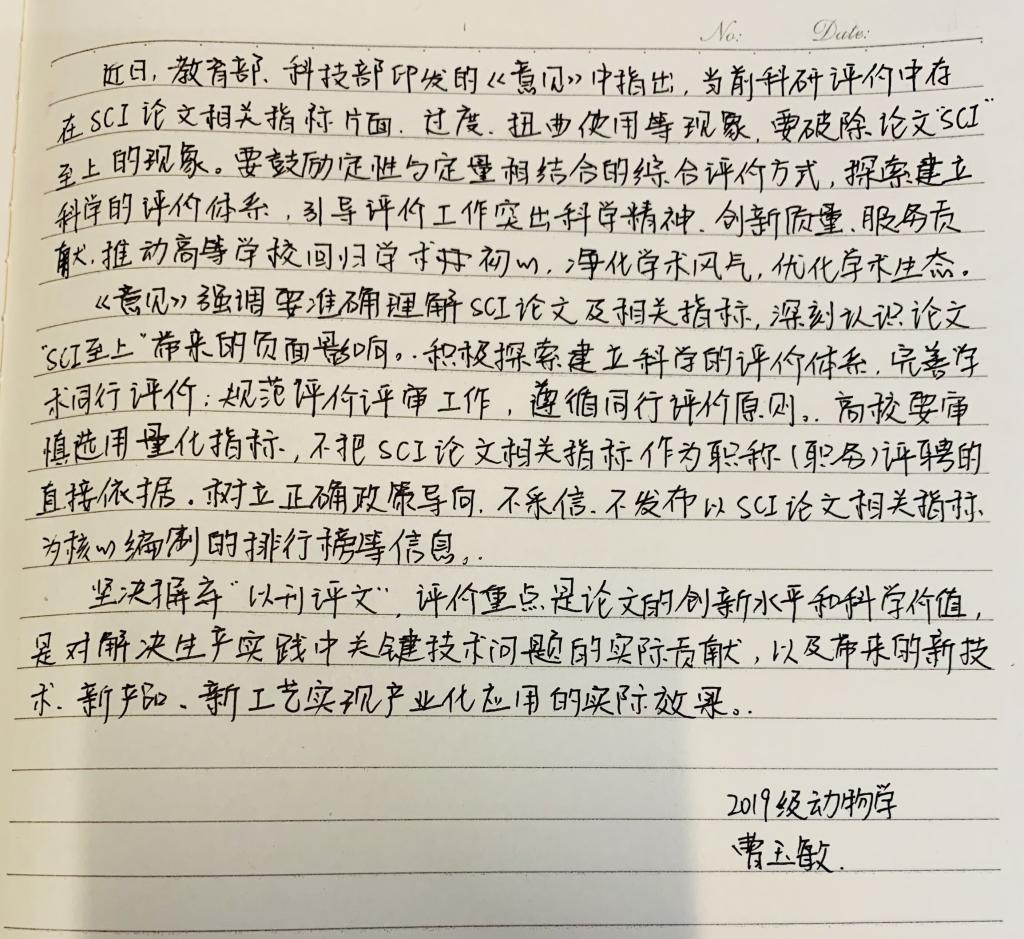 No: Date:
近日,教育部、科技部印发的《意见》中指出,当前科研评价中存
在SCI论文相关指标片面、过度、扭曲使用等现象,要破除论文"SCI"
至上的现象。要鼓励定性与定量相结合的综合评价方式,探索建立
科学的评价体系,引导评价工作突出科学精神、创新质量、服务贡
献,推动高等学校回归学术初心,净化学术风气,优化学术生态。
《意见》强调要准确理解SCI论文及相关指标,深刻认识论文
"SCI至上"带来的负面影响。积极探索建立科学的评价体系,完善学
术同行评价;规范评价评审工作,遵循同行评价原则。高校要审
慎选用量化指标,不把SCI论文相关指标作为职称(职务)评聘的
直接依据。树立正确政策导向,不采信、不发布以SCI论文相关指标
为核心编制的排行榜等信息。
坚决摒弃"以刊评文",评价重点是论文的创新水平和科学价值,
是对解决生产实践中关键技术问题的实际贡献,以及带来的新技
术、新产品、新工艺实现产业化应用的实际效果。
2019级动物学
曹玉敏.